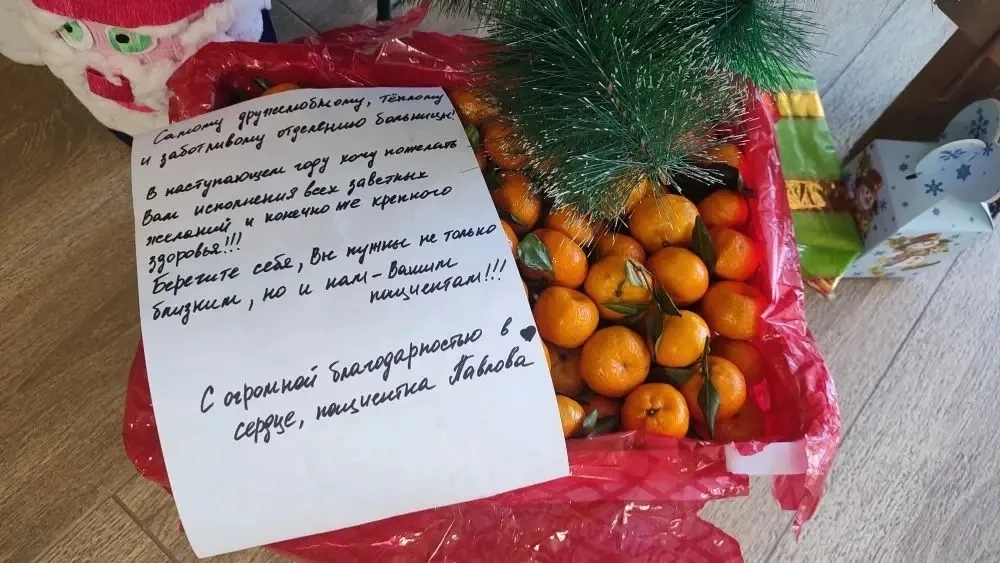 Самому дружелюбному, тёплому
и заботливому отделению больницы!
В наступающем году хочу пожелать
Вам исполнения всех заветных
желаний и конечно же крепкого
здоровья!!!
Берегите себя, Вы нужны не только
близким, но и нам - Вашим
пациентам!!!
С огромной благодарностью в
сердце, пациентка Павлова